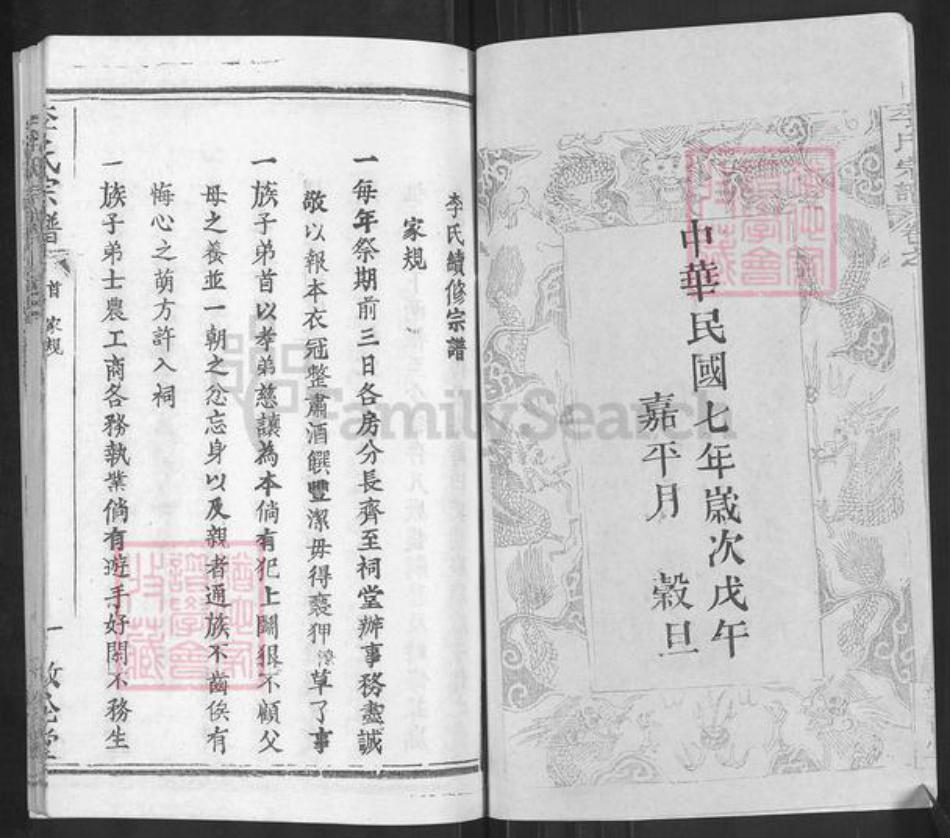 李氏宗譜卷之
中華民國七年歲次戊午
嘉平月 穀旦
李氏續修宗譜
家規
一每年祭期前三日各房分長齊至祠堂辦事務盡誠
敬以報本衣冠整肅酒饌豐潔毋得褻狎潦草了事
一族子弟首以孝弟慈讓為本倘有犯上鬭狠不顧父
母之養並一朝之忿忘身以及親者通族不齒俟有
悔心之萌方許入祠
一族子弟士農工商各務執業倘有遊手好閑不務生
李氏宗譜 首 家規 一
FamilySearch